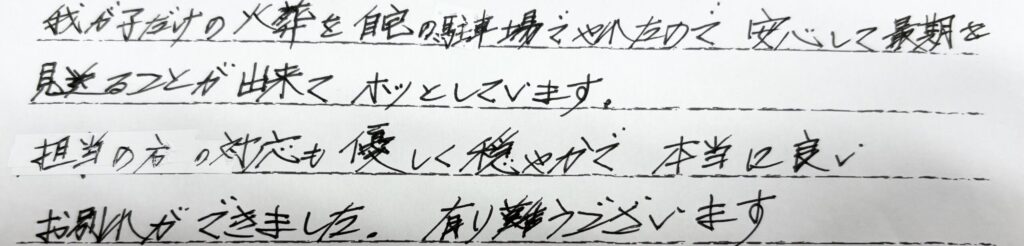 我が子だけの火葬を自宅の駐車場でやれたので 安心して最期を
見送ることが出来て ホッとしています。
担当の方の対応も優しく穏やかで 本当に良い
お別れができました。 有り難うございます